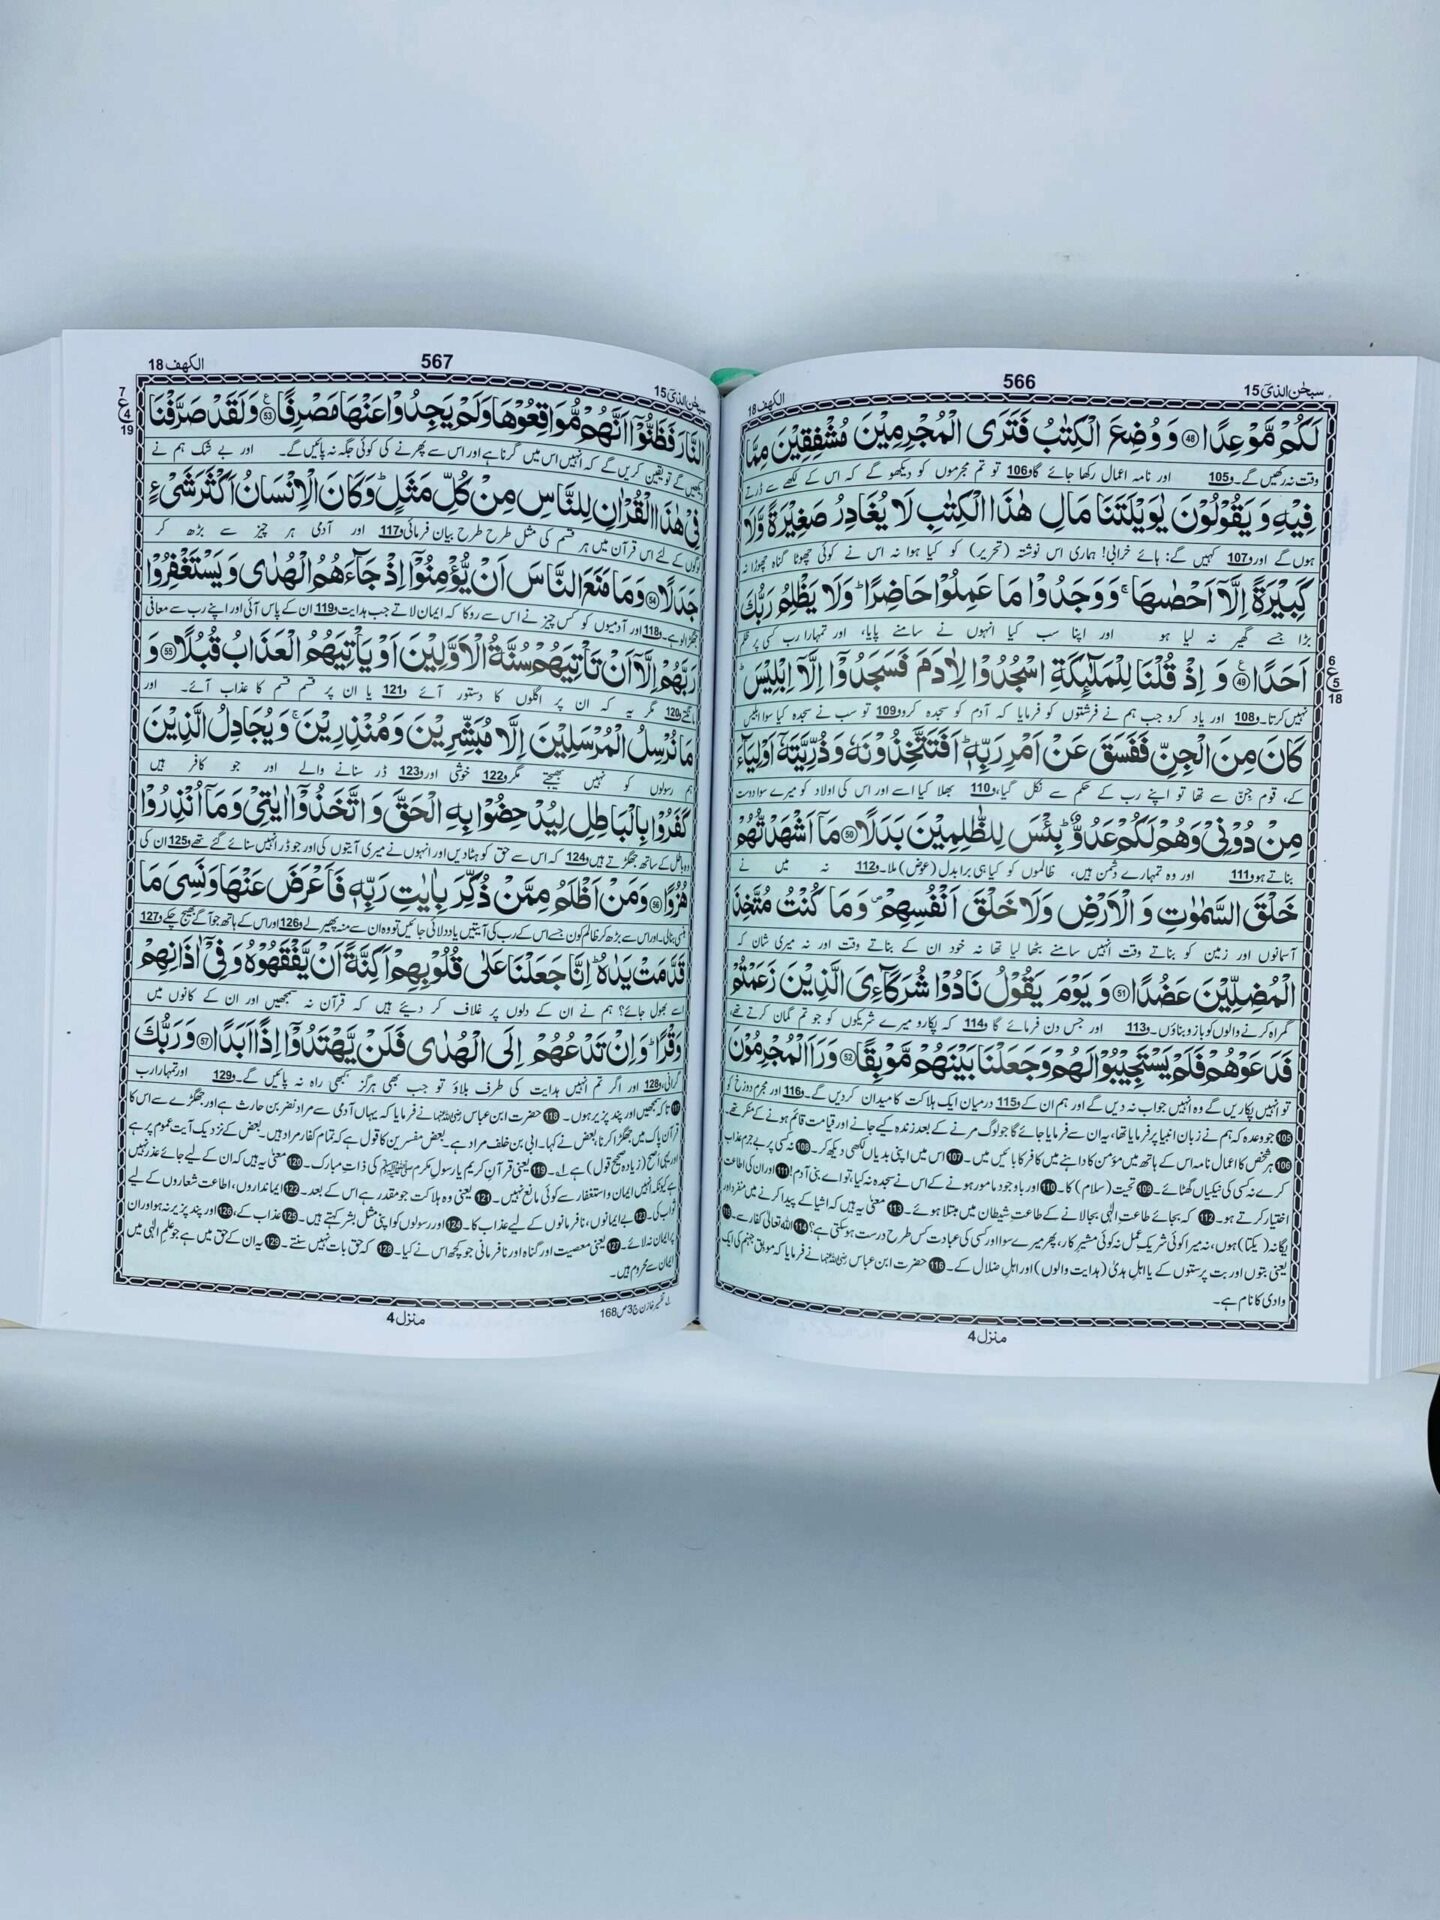 سبحٰن الذیٓ 15
566
الکھف 18
لَكُمْ مَّوْعِدًا ﴿48﴾ وَ وُضِعَ الْكِتٰبُ فَتَرَى الْمُجْرِمِیْنَ مُشْفِقِیْنَ مِمَّا
وقت نہ رکھیں گے۔ و105 اور نامہ اعمال رکھا جائے گا و106 تو تم مجرموں کو دیکھو گے کہ اس کے لکھے سے ڈرتے
فِیْهِ وَ یَقُوْلُوْنَ یٰوَیْلَتَنَا مَالِ هٰذَا الْكِتٰبِ لَا یُغَادِرُ صَغِیْرَةً وَّ لَا
ہوں گے اور و107 کہیں گے: ہائے خرابی! ہماری اس نوشتہ (تحریر) کو کیا ہوا نہ اس نے کوئی چھوٹا گناہ چھوڑا نہ
كَبِیْرَةً اِلَّاۤ اَحْصٰىهَاۚ وَ وَجَدُوْا مَا عَمِلُوْا حَاضِرًاؕ وَ لَا یَظْلِمُ رَبُّكَ
بڑا جسے گھیر نہ لیا ہو اور اپنا سب کیا انہوں نے سامنے پایا، اور تمہارا رب کسی پر ظلم
اَحَدًا ﴿49﴾ وَ اِذْ قُلْنَا لِلْمَلٰٓىٕكَةِ اسْجُدُوْا لِاٰدَمَ فَسَجَدُوْۤا اِلَّاۤ اِبْلِیْسَؕ
نہیں کرتا۔ و108 اور یاد کرو جب ہم نے فرشتوں کو فرمایا کہ آدم کو سجدہ کرو و109 تو سب نے سجدہ کیا سوا ابلیس
كَانَ مِنَ الْجِنِّ فَفَسَقَ عَنْ اَمْرِ رَبِّهٖؕ اَفَتَتَّخِذُوْنَهٗ وَ ذُرِّیَّتَهٗۤ اَوْلِیَآءَ
کے، قوم جن سے تھا تو اپنے رب کے حکم سے نکل گیا، و110 بھلا کیا اسے اور اس کی اولاد کو میرے سوا دوست
مِنْ دُوْنِیْ وَ هُمْ لَكُمْ عَدُوٌّؕ بِئْسَ لِلظّٰلِمِیْنَ بَدَلًا ﴿50﴾ مَاۤ اَشْهَدْتُّهُمْ
بناتے ہو و111 اور وہ تمہارے دشمن ہیں، ظالموں کو کیا ہی برا بدل (عوض) ملا۔ و112 نہ میں نے
خَلْقَ السَّمٰوٰتِ وَ الْاَرْضِ وَ لَا خَلْقَ اَنْفُسِهِمْ۪ وَ مَا كُنْتُ مُتَّخِذَ
آسمانوں اور زمین کو بناتے وقت انہیں سامنے بٹھا لیا تھا نہ خود ان کے بناتے وقت اور نہ میری شان کہ
الْمُضِلِّیْنَ عَضُدًا ﴿51﴾ وَ یَوْمَ یَقُوْلُ نَادُوْا شُرَكَآءِیَ الَّذِیْنَ زَعَمْتُمْ
گمراہ کرنے والوں کو بازو بناؤں۔ و113 اور جس دن فرمائے گا و114 کہ پکارو میرے شریکوں کو جو تم گمان کرتے تھے،
فَدَعَوْهُمْ فَلَمْ یَسْتَجِیْبُوْا لَهُمْ وَ جَعَلْنَا بَیْنَهُمْ مَّوْبِقًا ﴿52﴾ وَ رَاَ الْمُجْرِمُوْنَ
تو انہیں پکاریں گے وہ انہیں جواب نہ دیں گے اور ہم ان کے و115 درمیان ایک ہلاکت کا میدان کردیں گے۔ و116 اور مجرم دوزخ کو
105 جو وعدہ کہ ہم نے زبان انبیا پر فرمایا تھا، یہ ان سے فرمایا جائے گا جو لوگ مرنے کے بعد زندہ کیے جانے اور قیامت قائم ہونے کے منکر تھے۔
106 ہر شخص کا اعمال نامہ اس کے ہاتھ میں مؤمن کا داہنے میں کافر کا بائیں میں۔ 107 اس میں اپنی بدیاں لکھی دیکھ کر۔ 108 نہ کسی پر بے جرم عذاب
کرے نہ کسی کی نیکیاں گھٹائے۔ 109 تحیت (سلام) کا۔ 110 اور باوجود مامور ہونے کے اس نے سجدہ نہ کیا، تو اے بنی آدم! 111 اور ان کی اطاعت
اختیار کرتے ہو۔ 112 کہ بجائے طاعت الٰہی بجالانے کے طاعتِ شیطان میں مبتلا ہوئے۔ 113 معنی یہ ہیں کہ اشیا کے پیدا کرنے میں منفرد اور
یگانہ (یکتا) ہوں، نہ میرا کوئی شریکِ عمل نہ کوئی مشیر کار، پھر میرے سوا اور کسی کی عبادت کس طرح درست ہوسکتی ہے؟ 114 اللہ تعالیٰ کفار سے۔ 115
یعنی بتوں اور بت پرستوں کے یا اہل ہدیٰ (ہدایت والوں) اور اہل ضلال کے۔ 116 حضرت ابن عباس رضی اللہ عنہما نے فرمایا کہ موبق جہنم کی ایک
وادی کا نام ہے۔
منزل 4
6
ع
5
18
سبحٰن الذیٓ 15
567
الکھف 18
النَّارَ فَظَنُّوْۤا اَنَّهُمْ مُّوَاقِعُوْهَا وَ لَمْ یَجِدُوْا عَنْهَا مَصْرِفًا ﴿53﴾ وَ لَقَدْ صَرَّفْنَا
دیکھیں گے تو یقین کریں گے کہ انہیں اس میں گرنا ہے اور اس سے پھرنے کی کوئی جگہ نہ پائیں گے۔ اور بے شک ہم نے
فِیْ هٰذَا الْقُرْاٰنِ لِلنَّاسِ مِنْ كُلِّ مَثَلٍؕ وَ كَانَ الْاِنْسَانُ اَكْثَرَ شَیْءٍ
لوگوں کے لئے اس قرآن میں ہر قسم کی مثل طرح طرح بیان فرمائی و117 اور آدمی ہر چیز سے بڑھ کر
جَدَلًا ﴿54﴾ وَ مَا مَنَعَ النَّاسَ اَنْ یُّؤْمِنُوْۤا اِذْ جَآءَهُمُ الْهُدٰى وَ یَسْتَغْفِرُوْا
جھگڑالو ہے۔ و118 اور آدمیوں کو کس چیز نے اس سے روکا کہ ایمان لاتے جب ہدایت و119 ان کے پاس آئی اور اپنے رب سے معافی
رَبَّهُمْ اِلَّاۤ اَنْ تَاْتِیَهُمْ سُنَّةُ الْاَوَّلِیْنَ اَوْ یَاْتِیَهُمُ الْعَذَابُ قُبُلًا ﴿55﴾ وَ
مانگتے و120 مگر یہ کہ ان پر اگلوں کا دستور آئے و121 یا ان پر قسم قسم کا عذاب آئے۔ اور
مَا نُرْسِلُ الْمُرْسَلِیْنَ اِلَّا مُبَشِّرِیْنَ وَ مُنْذِرِیْنَۚ وَ یُجَادِلُ الَّذِیْنَ
ہم رسولوں کو نہیں بھیجتے مگر و122 خوشی اور و123 ڈر سنانے والے اور جو کافر ہیں
كَفَرُوْا بِالْبَاطِلِ لِیُدْحِضُوْا بِهِ الْحَقَّ وَ اتَّخَذُوْۤا اٰیٰتِیْ وَ مَاۤ اُنْذِرُوْا
وہ باطل کے ساتھ جھگڑتے ہیں و124 کہ اس سے حق کو ہٹادیں اور انہوں نے میری آیتوں کی اور جو ڈر انہیں سنائے گئے تھے و125 ان کی
هُزُوًا ﴿56﴾ وَ مَنْ اَظْلَمُ مِمَّنْ ذُكِّرَ بِاٰیٰتِ رَبِّهٖ فَاَعْرَضَ عَنْهَا وَ نَسِیَ مَا
ہنسی بنالی۔ اور اس سے بڑھ کر ظالم کون جسے اس کے رب کی آیتیں یاد دلائی جائیں تو وہ ان سے منہ پھیر لے و126 اور اس کے ہاتھ جو آگے بھیج چکے و127
قَدَّمَتْ یَدٰهُؕ اِنَّا جَعَلْنَا عَلٰى قُلُوْبِهِمْ اَكِنَّةً اَنْ یَّفْقَهُوْهُ وَ فِیْۤ اٰذَانِهِمْ
اسے بھول جائے؟ ہم نے ان کے دلوں پر غلاف کر دیئے ہیں کہ قرآن نہ سمجھیں اور ان کے کانوں میں
وَقْرًاؕ وَ اِنْ تَدْعُهُمْ اِلَى الْهُدٰى فَلَنْ یَّهْتَدُوْۤا اِذًا اَبَدًا ﴿57﴾ وَ رَبُّكَ
گرانی، و128 اور اگر تم انہیں ہدایت کی طرف بلاؤ تو جب بھی ہرگز کبھی راہ نہ پائیں گے۔ و129 اور تمہارا رب
117 تاکہ سمجھیں اور پند پزیر ہوں۔ 118 حضرت ابن عباس رضی اللہ عنہما نے فرمایا کہ یہاں آدمی سے مراد نضر بن حارث ہے اور جھگڑے سے اس کا
قرآن پاک میں جھگڑا کرنا، بعض نے کہا: ابی بن خلف مراد ہے۔ بعض مفسرین کا قول ہے کہ تمام کفار مراد ہیں۔ بعض کے نزدیک آیت عموم پر ہے
اور یہی اصح (زیادہ صحیح قول) ہے۔ 119 یعنی قرآن کریم یا رسول مکرم ﷺ کی ذاتِ مبارک۔ 120 معنی یہ ہیں کہ ان کے لیے جائے عذر نہیں
ہے کیونکہ انہیں ایمان و استغفار سے کوئی مانع نہیں۔ 121 یعنی وہ ہلاکت جو مقدر ہے اس کے بعد۔ 122 ایمانداروں، اطاعت شعاروں کے لیے
ثواب کی۔ 123 بے ایمانوں، نافرمانوں کے لیے عذاب کا۔ 124 اور رسولوں کو اپنی مثل بشر کہتے ہیں۔ 125 عذاب کے، 126 اور پند پزیر نہ ہو اور ان
پر ایمان نہ لائے۔ 127 یعنی معصیت اور گناہ اور نافرمانی جو کچھ اس نے کیا۔ 128 کہ حق بات نہیں سنتے۔ 129 یہ ان کے حق میں ہے جو علم الٰہی میں
ایمان سے محروم ہیں۔
تفسیر خازن ج3 ص168
منزل 4
7
ع
4
19